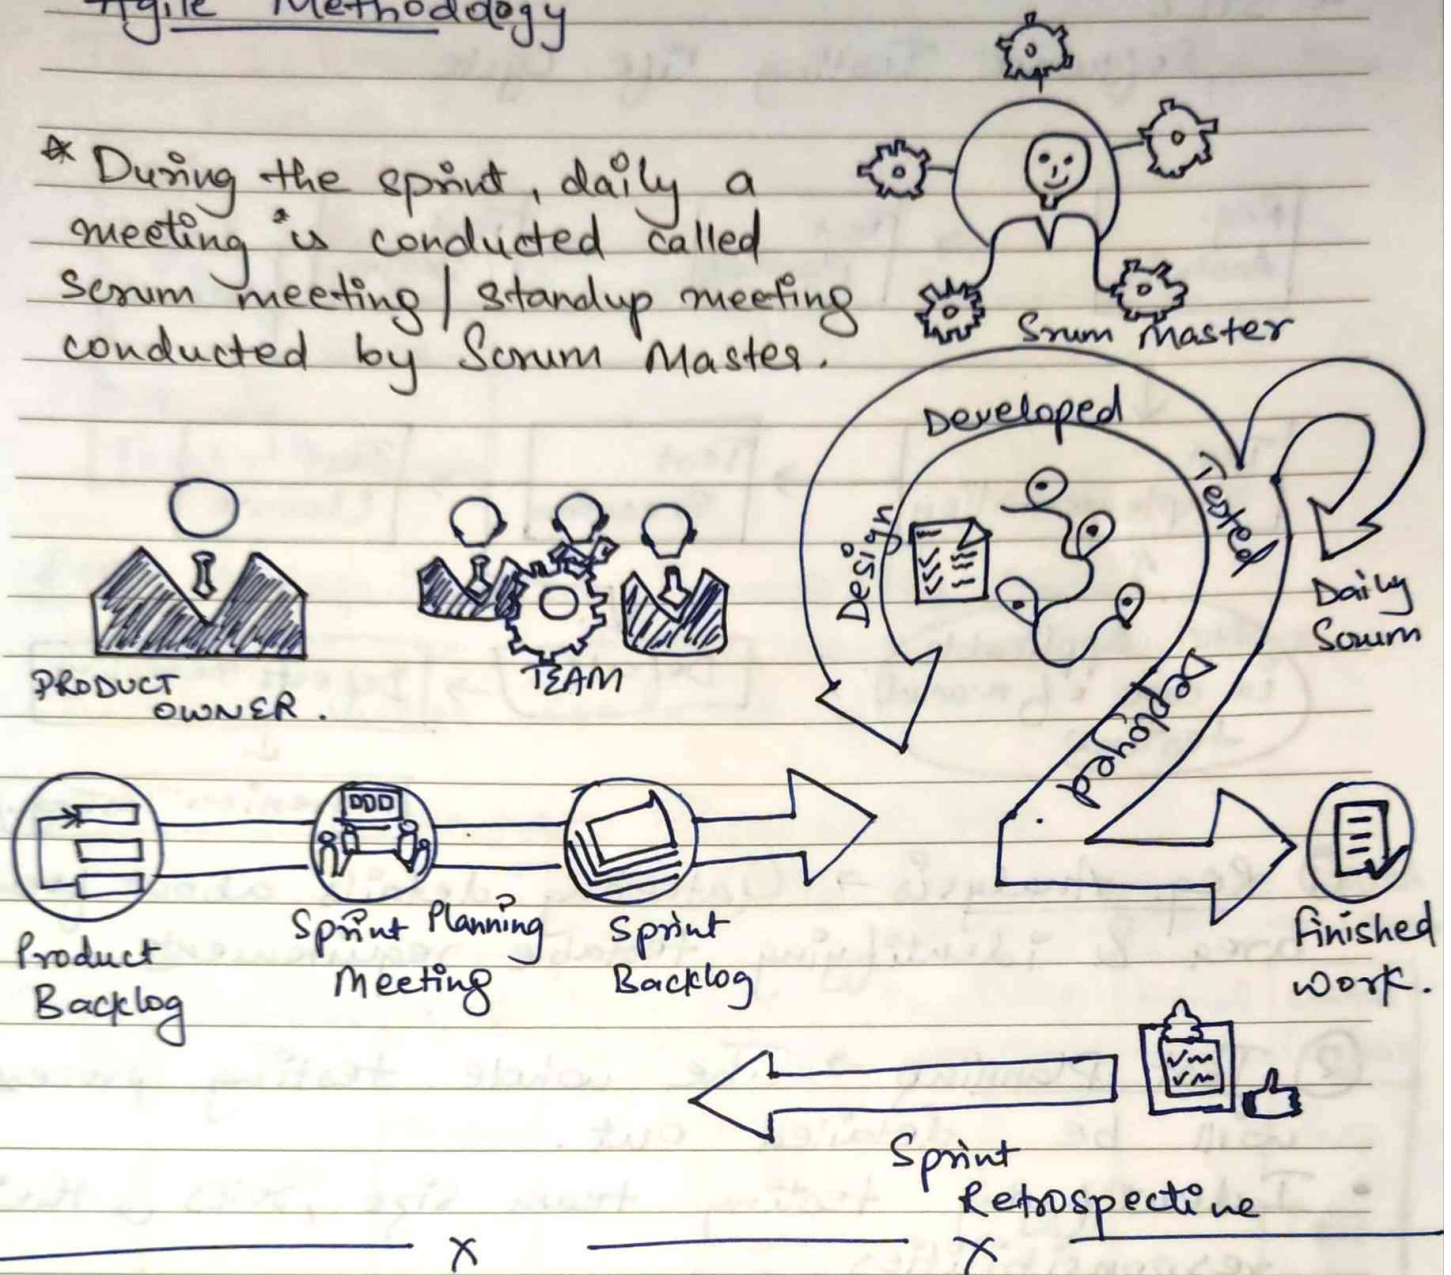 Agile Methodology
* During the sprint, daily a
meeting is conducted called
Scrum meeting / standup meeting
conducted by Scrum Master.
Srum Master
Developed
Design
Tested
Deployed
Daily
Scrum
PRODUCT
OWNER.
TEAM
Product
Backlog
Sprint Planning
Meeting
Sprint
Backlog
Finished
work.
Sprint
Retrospective
x x